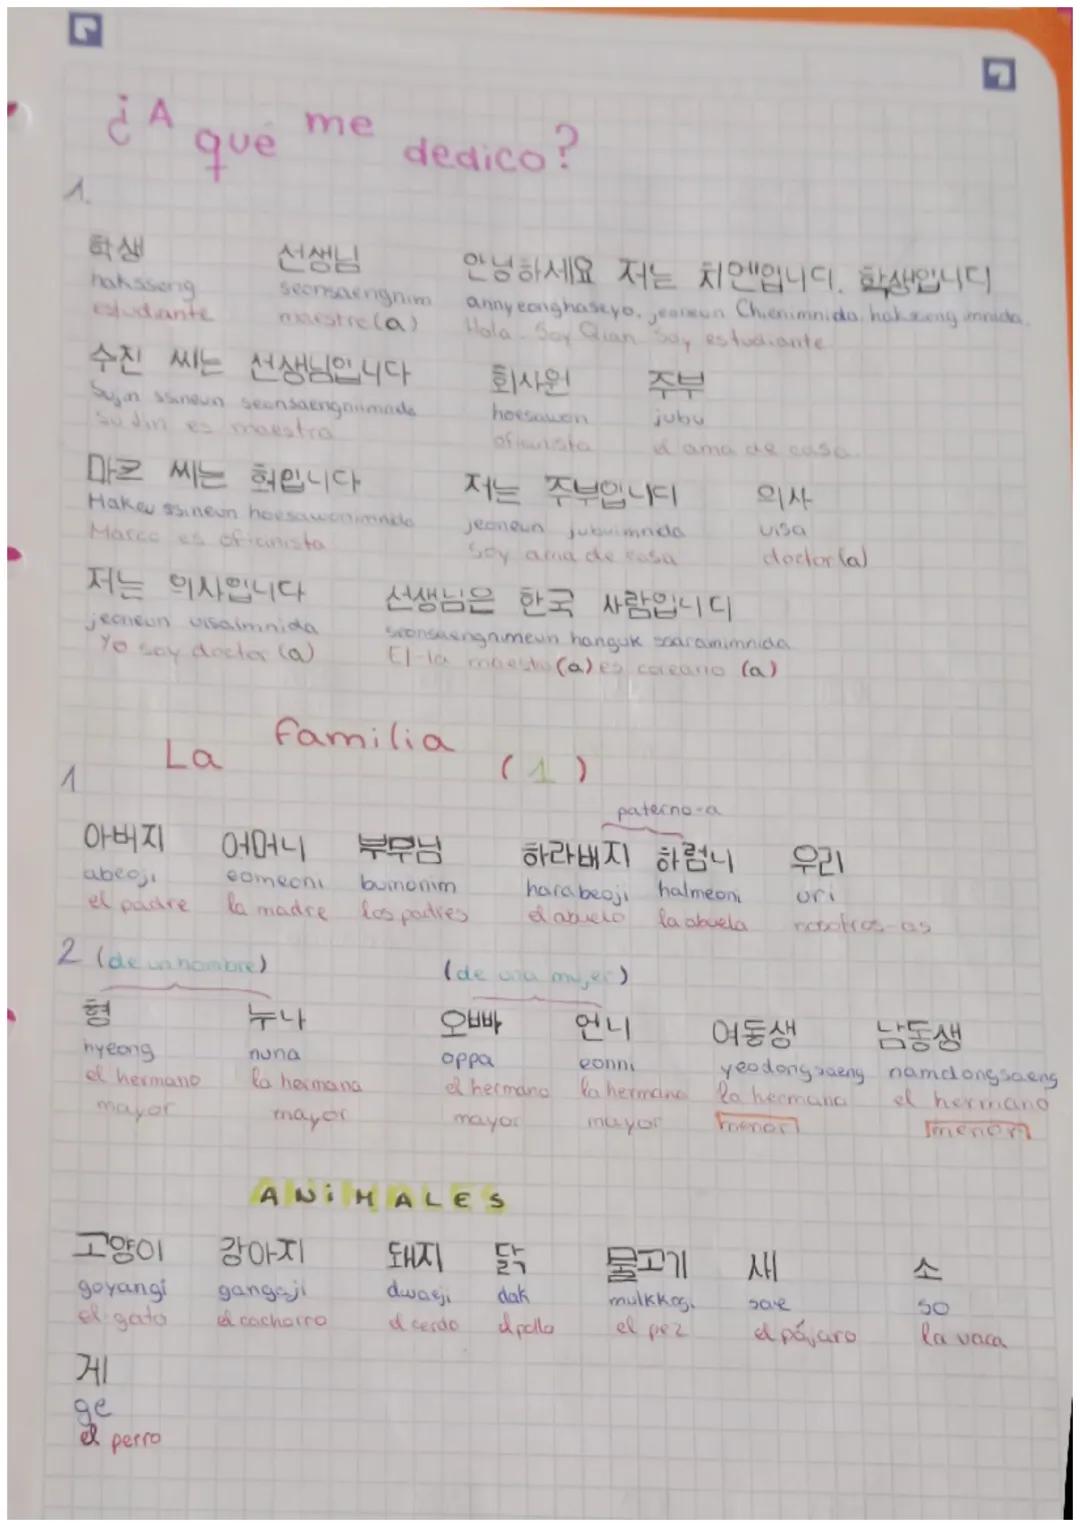 ¿A qué me dedico?
1.
학생 선생님 안녕하세요 저는 치엔입니다. 학생입니다
haksseng seonsaengnim annyeonghaseyo. jeoneun Chienimnida. haksseng imnida.
estudiante maestro(a) Hola. Soy Qian. Soy estudiante
수진 씨는 선생님입니다 회사원 주부
Sujin ssineun seonsaengnimimnida hoesawon jubu
Su Jin es maestra oficinista el ama de casa
마크 씨는 입니다 저는 주부입니다 의사
Hakeu ssineun hoesawonimnida jeoneun jubuimnida uisa
Marco es oficinista Soy ama de casa doctor(a)
저는 의사입니다 선생님은 한국 사람입니다
jeoneun uisaimnida seonsaengnimeun hanguk saaramimnida
Yo soy doctor (a) El-la maestro(a) es coreano (a)
La familia (1)
1 paterno-a
아버지 어머니 부무님 하라버지 하럼니 우리
abeoji eomeoni bumonim harabeoji halmeoni uri
el padre la madre los padres el abuelo la abuela nosotros-as
2 (de un hombre) (de una mujer)
형 누나 오빠 언니 여동생 남동생
hyeong nuna oppa eonni yeodongsaeng namdongsaeng
el hermano la hermana el hermano la hermana la hermana el hermano
mayor mayor mayor mayor menor menor
ANiMALES
고양이 강아지 돼지 닭 물고기 새 소
goyangi gangaji dwaeji dak mulkkogi sae so
el gato el cachorro el cerdo el pollo el pez el pájaro la vaca
게
ge
el perro